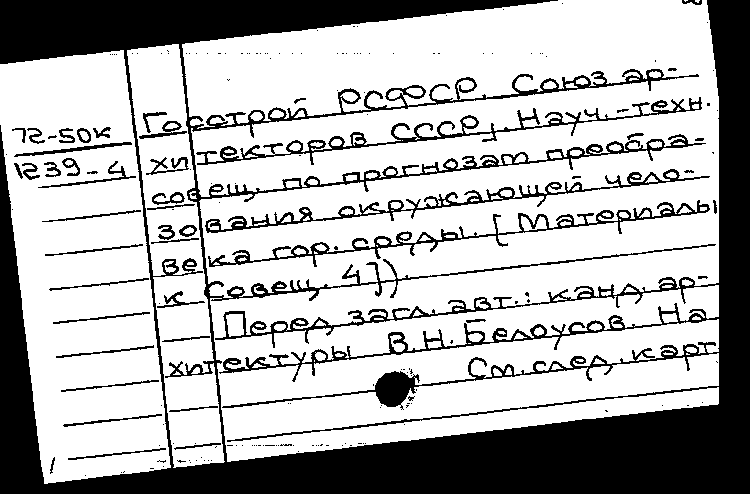 72-50к
1239-4
Госстрой РСФСР. Союз ар-
хитекторов СССР]. Науч.-техн.
совещ. по прогнозам преобра-
зования окружающей чело-
века гор. среды. [Материалы
к Совещ. 4]).
Перед загл. авт.: канд. ар-
хитектуры В.Н. Белоусов. На
См. след. карт